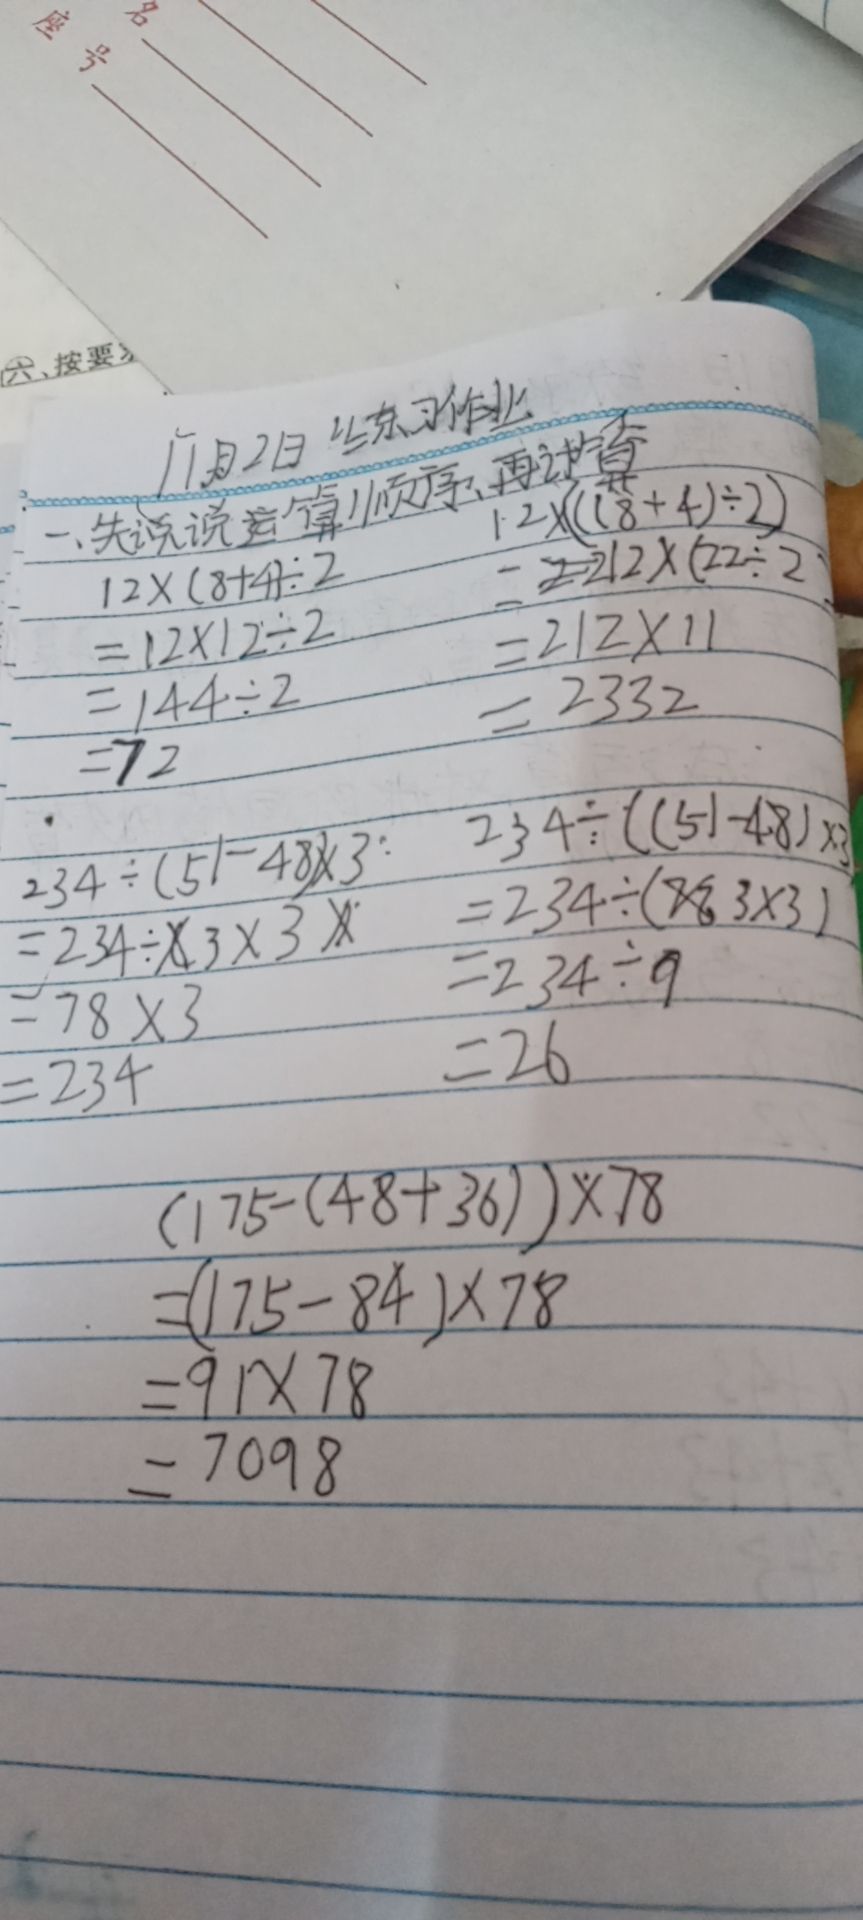 名
座号
六、按要
11月2日 练习作业
一、先说说运算顺序,再计算
12×(8+4)÷2
=12×12÷2
=144÷2
=72
12×((18+4)÷2)
=212×(22÷2
=212×11
=2332
234÷(51-48)×3
=234÷3×3
=78×3
=234
234÷((51-48)×3
=234÷(3×3)
=234÷9
=26
(175-(48+36))×78
=(175-84)×78
=91×78
=7098